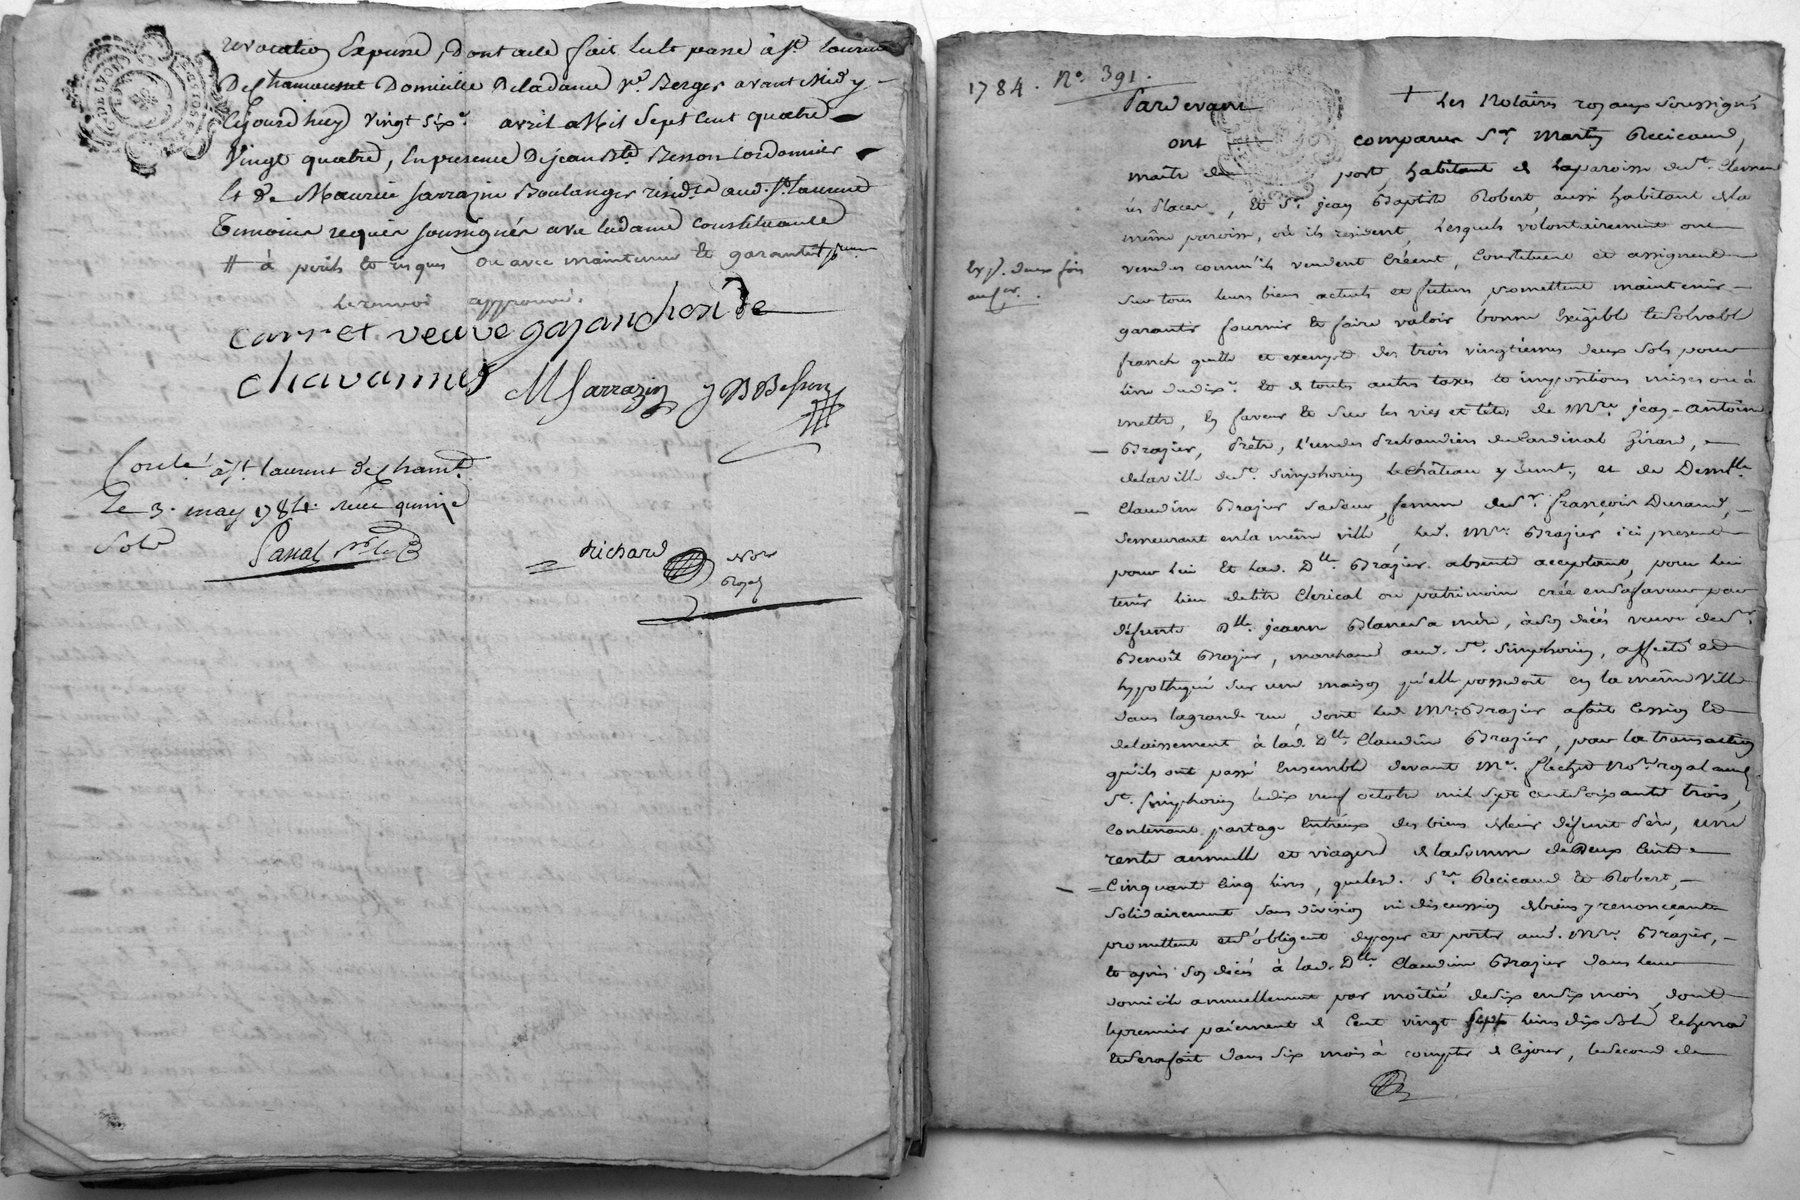 revocation Expresse, Dont acte fait leu et passé à St. Laurent
De Chamousset Domicille De ladame Ve. Berger avant Midy
Cejourd'huy Vingt Six avril Mil Sept Cent quatre
Vingt quatre, En presence De jean Bte. Besson Cordonnier
Et De Maurice Sarrazin Boulanger resid. aud. St. Laurent
Temoins requis soussignés avec ladame Constituante
# à perils et risques ou avec maintenue Et garantie
Le renvoi approuvé.
carret veuve gazanchon de
chavannes M Sarrazin J B Besson
Conle. à St. Laurent de Cham.
Le 3. may 1784. reçu quinze
Sols
Richard Nore
Royal
1784. No. 391.
Pardevant + Les Notaires royaux Soussignés
ont comparu Sr. Martin Recicaud,
maitre de port, habitant de la paroisse de St. Clement
les Places, Et Sr. jean Baptiste Robert, aussi habitant de la
même paroisse, où ils resident, Lesquels volontairement ont
Exp. deux fois
vendus comm'ils vendent Créent, Constituent et assignent
Sur tous leurs biens actuels et futurs promettent maintenir
garantir fournir Et faire valoir bonne Exigible Et Solvable
franche quitte et exempte des trois vingtiemes deux Sols pour
livre du dixe. Et de toutes autres taxes Et impositions mises ou à
mettre, En faveur Et Sur les vies et têtes de Mre. jean-antoine
Brazier, Prêtre, l'un des Prebandiers du Cardinal Girard,
de la ville de St. Simphorien Le Château y demt., et de Demlle.
Claudine Brazier Sa Soeur, femme de Sr. françois Durand,
demeurant en la même ville, led. Mre. Brazier ici present
pour lui Et lad. Dlle. Brazier absente acceptant, pour lui
tenir lieu de titre Clerical ou patrimoine créé en Sa faveur par
défunte Dlle. jeanne Blanc Sa mère, à Son décés veuve de Sr.
Benoît Brazier, marchand aud. St. Simphorien, affecté et
hypothequé Sur une maison qu'elle possedoit en la même Ville
dans la grande rue, dont led. Mre. Brazier a fait Cession Et
delaissement à lad. Dlle. Claudine Brazier, par la transaction
qu'ils ont passé Ensemble devant Me. Nore. royal aud.
St. Simphorien le dix neuf octobre mil Sept cent Soixante trois,
Contenant partage Entr'eux des biens de leur défunt Père, une
rente annuelle et viagere de la Somme de Deux Cent
Cinquante Cinq livres, que lesd. Srs. Recicaud Et Robert,
Solidairement Sans division ni discussion de biens y renonceants
promettent et S'obligent de payer et porter aud. Mre. Brazier,
Et après Son décés à lad. Dlle. Claudine Brazier dans leur
domicile annuellement par moitié de Six en Six mois, dont
le premier paiement de Cent vingt Sept livres dix Sols
Et Sera fait dans Six mois à compter de Ce jour, le Second de